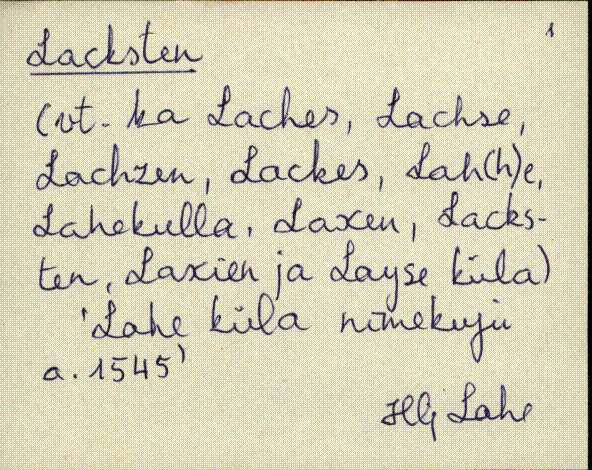 1
Lacksten
(vt. ka Laches, Lachse,
Lachzen, Lackes, Lah(h)e,
Lahekulla, Laxen, Lacks-
ten, Laxien ja Layse küla)
'Lahe küla nimekuju
a. 1545'
HlJ Lahe